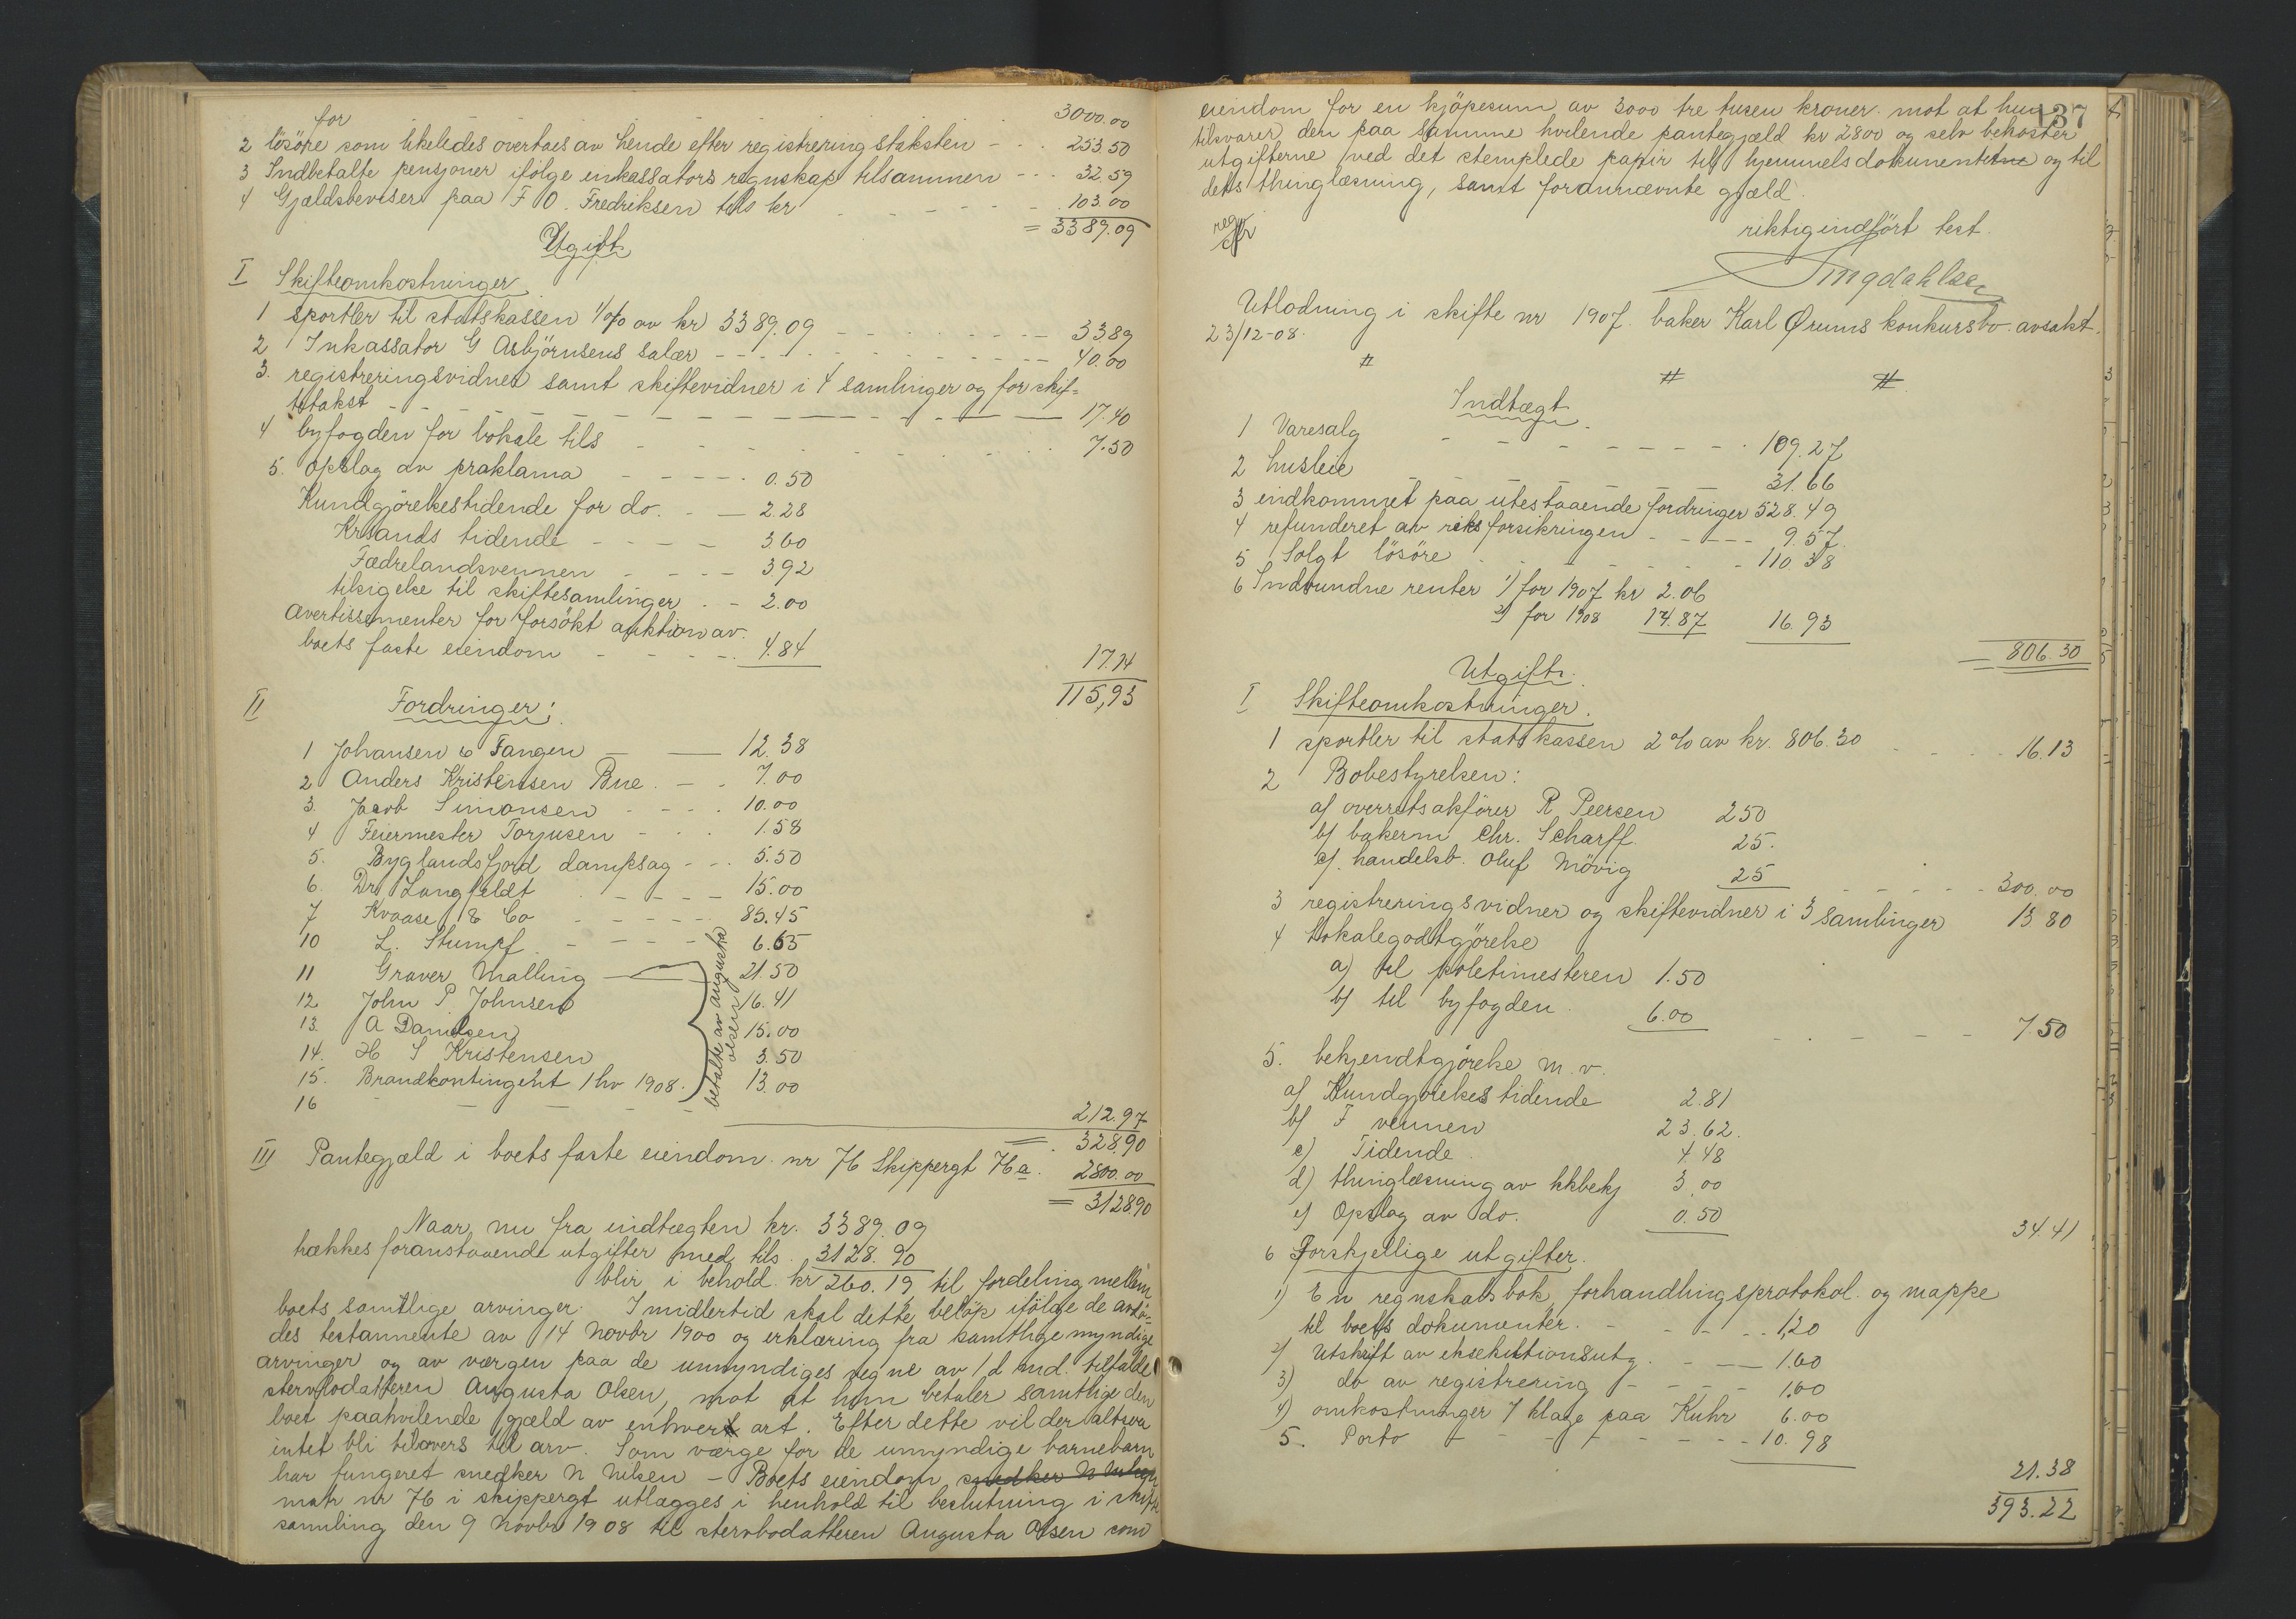 for 3000.00
2 lösöre som likeledes overtaes av hende efter registreringstaksten - - . 253 50
3 Indbetalte pensjoner ifölge inkassators regnskap tilsammen - - - 32.59
4 Gjældsbeviser paa F O. Fredriksen tils kr - - - - - - 103.00
= 3389.09
Utgift
I Skifteomkostninger
1 sportler til statskassen 1 % av kr 3389.09 - - - - - - - 33 89
2 Inkassator G Asbjörnsens salær - - - - - - - - - - 40.00
3. registreringsvidner samt skiftevidner i 4 samlinger og for skif=
tetakst - - - - - - - - - - 17.40
4 byfogden for lokale tils - - - - - - - 7.50
5. Opslag av proklama - - - - - 0.50
Kundgjörelsestidende for do. - - 2.28
Krsands tidende - - - - 3 60
Fædrelandsvennen - - - - 3 92
tilsigelse til skiftesamlinger . - 2.00
Avertissementer for forsökt auktion av
boets faste eiendom - - - - - 4.84
17.14
115,93
II Fordringer:
1 Johansen & Fangen - - 12.38
2 Anders Kristensen Bue. - - 7.00
3. Jacob Simonsen - - - - 10.00
4 Feiermester Torjusen - - . 1.58
5. Byglandsfjord dampsag - - - 5.50
6. Dr. Langfeldt . - - - - 15.00
7 Kvaase & Co - - - - - - 85.45
10 L. Stumpf - - - - 6.65
11 Graver Malling 21.50
12 John P Johnsen 16.41
13. A Danielsen 15.00
14. H S Kristensen 3.50
15. Brandkontingent 1 hv 1908. 13.00
betalte av Augusta
Olsen
16 - - - - -
212.97
= 328.90
III Pantegjæld i boets faste eiendom nr 76 Skippergt 76 a. 2800.00
= 3128.90
Naar nu fra indtægten kr. 3389.09
trækkes foranstaaende utgifter med tils. 3128.90
blir i behold kr 260.19 til fordeling mellem
boets samtlige arvinger. Imidlertid skal dette belöp ifölge de avdö=
des testamente av 14 Novbr 1900 og erklæring fra samtlige myndige
arvinger og av værgen paa de umyndiges vegne av 1 d md. tilfalde
stervbodatteren Augusta Olsen, mot at hun betaler samtlige den
boet paahvilende gjæld av enhver art. Efter dette vil der altsaa
intet bli tilovers til arv. Som værge for de umyndige barnebarn
har fungeret snedker N Nilsen - Boets eiendom snedker N Nilsen
matr nr 76 i skippergt utlægges i henhold til beslutning i skifte
samling den 9 Novbr 1908 til stervbodatteren Augusta Olsen som
137
eiendom for en kjöpesum av 3000 tre tusen kroner mot at hun
tilsvarer den paa samme hvilende pantegjæld kr 2800 og selv bekoster
utgifterne ved det stemplede papir til hjemmelsdokumentet og til
dets thinglæsning, samt forannævnte gjæld.
riktig indfört test.
Utlodning i skifte nr 1907. baker Karl Ørums konkursbo avsakt.
23/12-08.
# # #
Indtægt.
1 Varesalg - - - - - - - . 109.27
2 husleie - - - - - 31.66
3 indkommet paa utestaaende fordringer 528.49
4 refunderet av riksforsikringen - - - - - 9.57
5 Solgt lösöre - - - - - - - - 110 38
6 Indvundne renter 1) for 1907 kr 2.06
2) for 1908 14.87 16.93
= 806.30
Utgift.
I Skifteomkostninger.
1 sportler til statskassen 2 % av kr. 806.30 - - - - 16.13
2 Bobestyrelsen:
a) overretssakförer R Peersen 250
b) bakerm Chr. Scharff 25.
c) handelsb. Oluf Mövig 25 - - - - - - 300.00
3 registreringsvidner og skiftevidner i 3 samlinger 13 80
4 Lokalegodtgjörelse
a) til politimesteren 1.50
b) til byfogden 6.00 - . - - - 7.50
5. bekjendtgjörelse m. v.
a) Kundgjörelsestidende 2.81
b) F vennen 23.62.
c) Tidende 4.48
d) thinglæsning av kkbekj 3.00
e) Opslag av do. 0.50
34.41
6 Forskjellige utgifter.
1) En regnskabsbok, forhandlingsprotokol og mappe
til boets dokumenter. - - - - - 1,20
2) Utskrift av eksekutionsutg. - - - 1.60
3) do av registrering - - - - 1.60
4) omkostninger 7 klage paa Kuhr 6.00
5. Porto - - - - - - - - 10.98
21.38
393.22